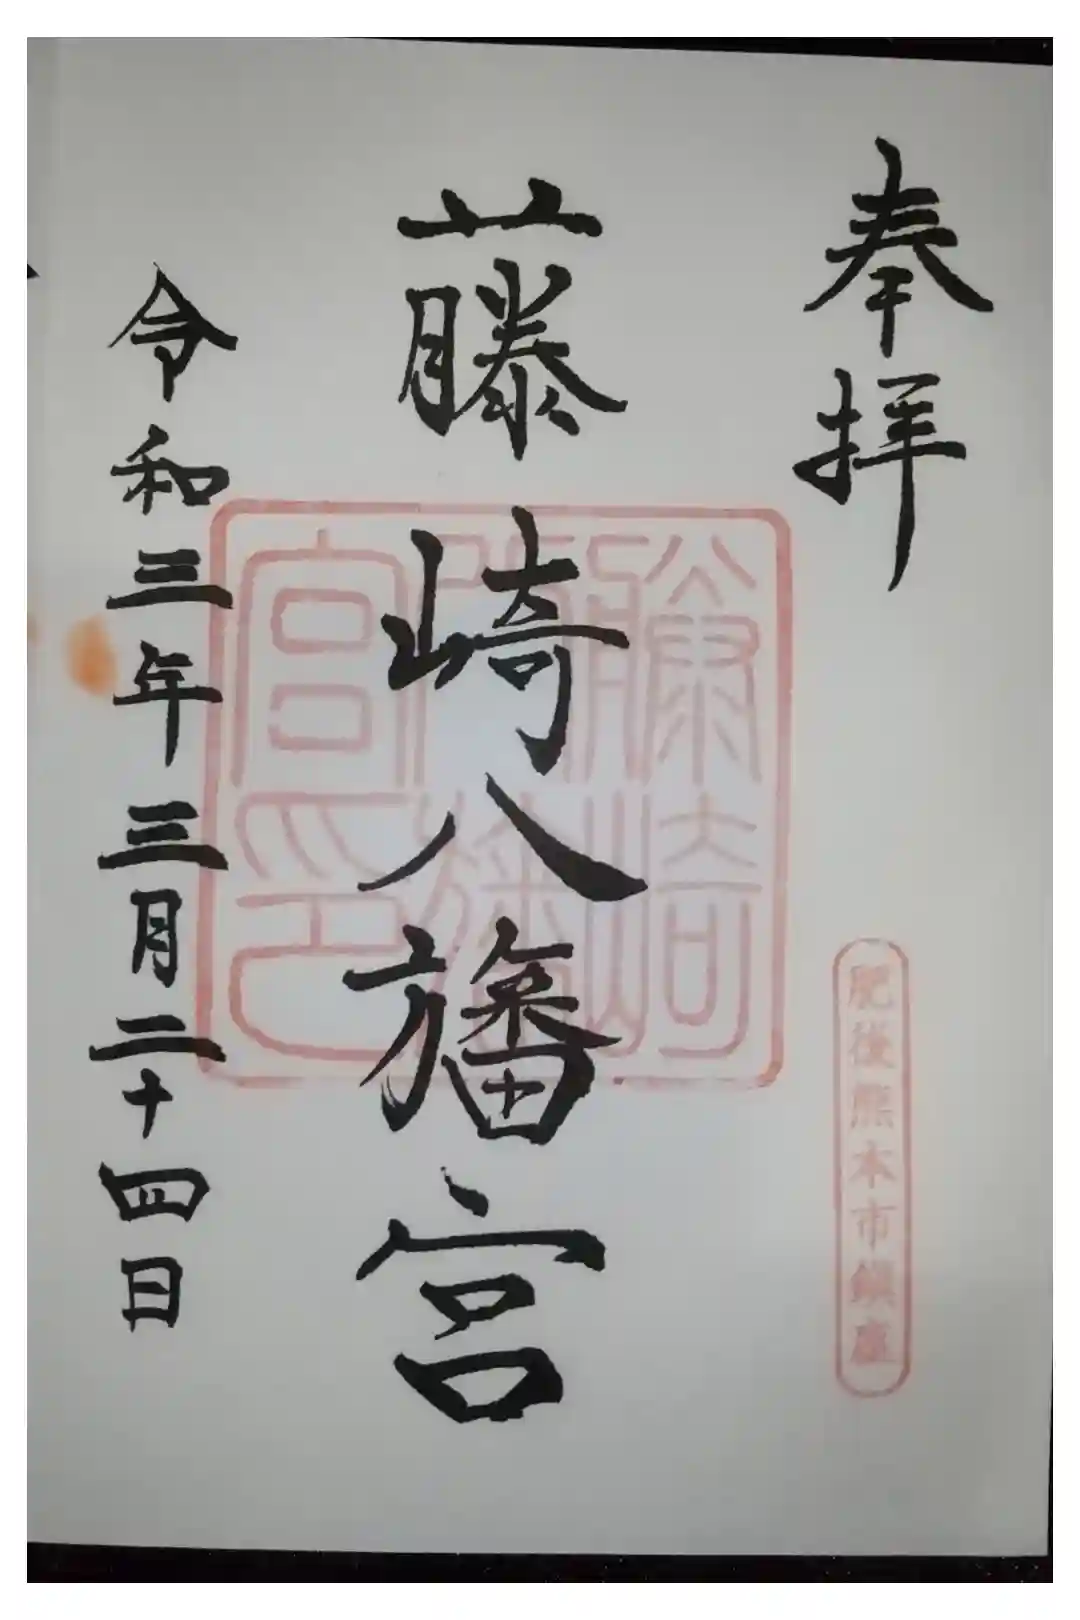 奉拝
肥後熊本市鎮座
藤崎八旛宮
藤崎八旛宮印
令和三年三月二十四日